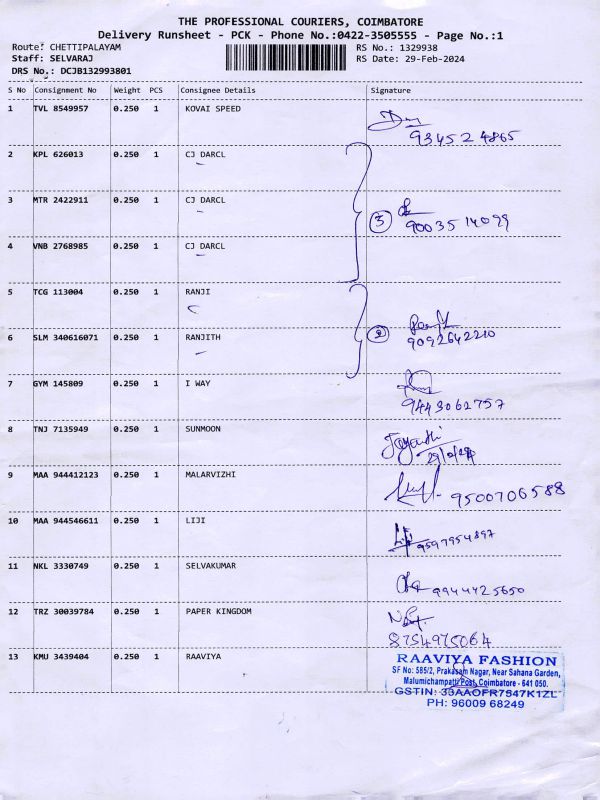 THE PROFESSIONAL COURIERS, COIMBATORE
Delivery Runsheet - PCK - Phone No.:0422-3505555 - Page No.:1
Route: CHETTIPALAYAM RS No.: 1329938
Staff: SELVARAJ RS Date: 29-Feb-2024
DRS No.: DCJB132993801
S No Consignment No Weight PCS Consignee Details Signature
1 TVL 8549957 0.250 1 KOVAI SPEED
934524865
2 KPL 626013 0.250 1 CJ DARCL
3 MTR 2422911 0.250 1 CJ DARCL
3 9003514099
4 VNB 2768985 0.250 1 CJ DARCL
5 TCG 113004 0.250 1 RANJI
6 SLM 340616071 0.250 1 RANJITH
2 9092642210
7 GYM 145809 0.250 1 I WAY
9443062757
8 TNJ 7135949 0.250 1 SUNMOON
9 MAA 944412123 0.250 1 MALARVIZHI
9500706588
10 MAA 944546611 0.250 1 LIJI
9597954897
11 NKL 3330749 0.250 1 SELVAKUMAR
9944425650
12 TRZ 30039784 0.250 1 PAPER KINGDOM
8754975064
13 KMU 3439404 0.250 1 RAAVIYA
RAAVIYA FASHION
SF No: 585/2, Prakasam Nagar, Near Sahana Garden,
Malumichampatti Post, Coimbatore - 641 050.
GSTIN: 33AAOFR7547K1ZL
PH: 96009 68249